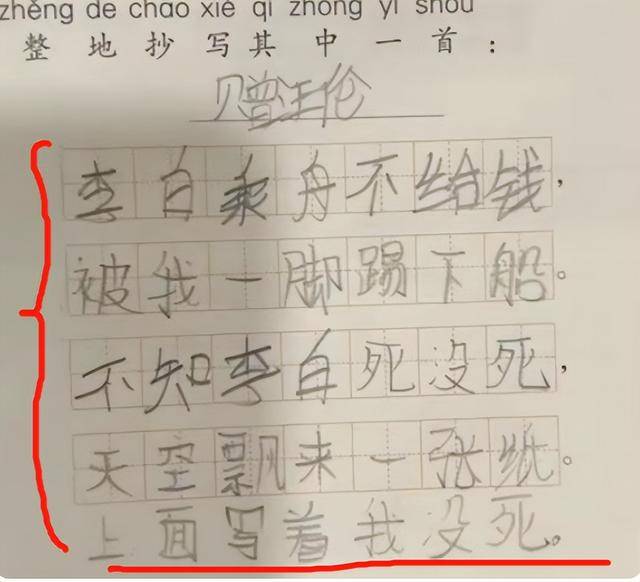 zhěng de chāo xiě qí zhōng yì shǒu
整地抄写其中一首：
赠汪伦
李白乘舟不给钱，
被我一脚踢下船。
不知李白死没死，
天空飘来一张纸。
上面写着我没死。